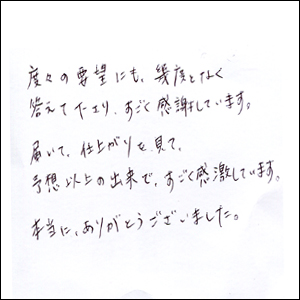 度々の要望にも、幾度となく
答えて下さり、すごく感謝しています。
届いて、仕上がりを見て、
予想以上の出来で、すごく感激しています。
本当に、ありがとうございました。